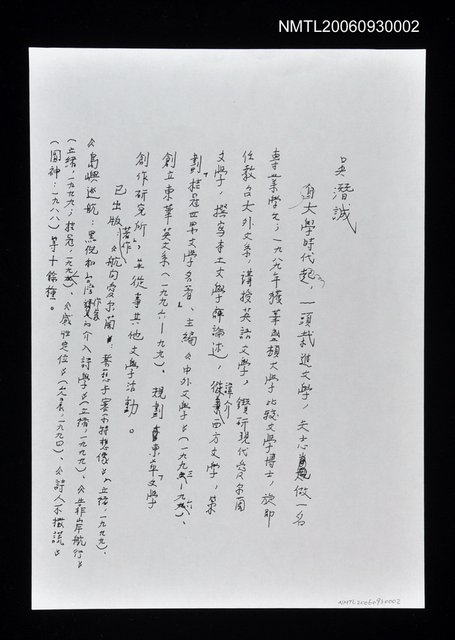 NMTL20060930002
吳潛誠
自大學時代起，一頭栽進文學，矢志做一名
專業學者，一九八九年獲華盛頓大學比較文學博士，旋即
任教台大外文系，講授英語文學，鑽研現代愛爾蘭
文學，撰寫本土文學評論述，譯介西方文學，策
劃「桂冠世界文學名著」、主編《中外文學》（一九九三—九六）、
創立東華英文系（一九九六—九九）、規劃東華「文學
創作研究所」，並從事其他文學活動。
已出版著作：《航向愛爾蘭：葉慈與塞爾特想像》（立緒，一九九九）、
《島嶼巡航：黑倪和台灣作家的介入詩學》（立緒，一九九九）、《女非岸航行》
（立緒，一九九九；桂冠，一九九五）、《感性定位》（允晨，一九九四）、《詩人不撒謊》
（圓神：一九八八）等十餘種。
NMTL20060930002